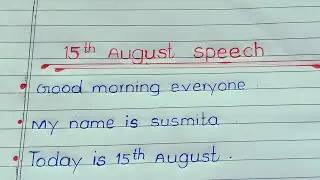 15th August speech
Good morning everyone.
My name is susmita.
Today is 15th August.